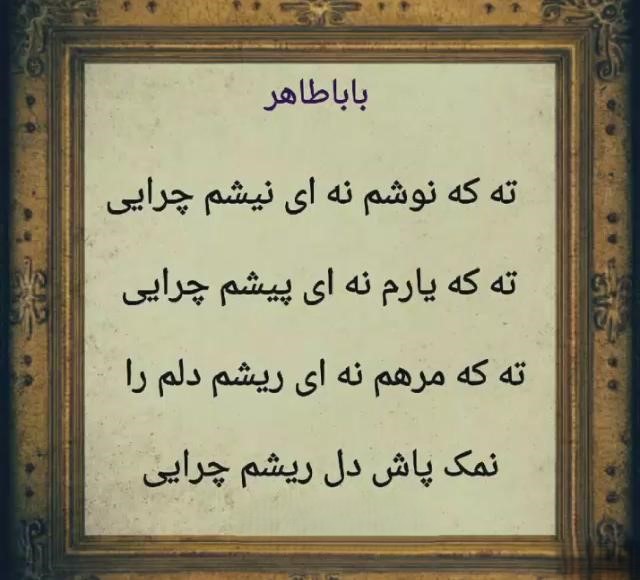 باباطاهر
ته که نوشم نه ای نیشم چرایی
ته که یارم نه ای پیشم چرایی
ته که مرهم نه ای ریشم دلم را
نمک پاش دل ریشم چرایی